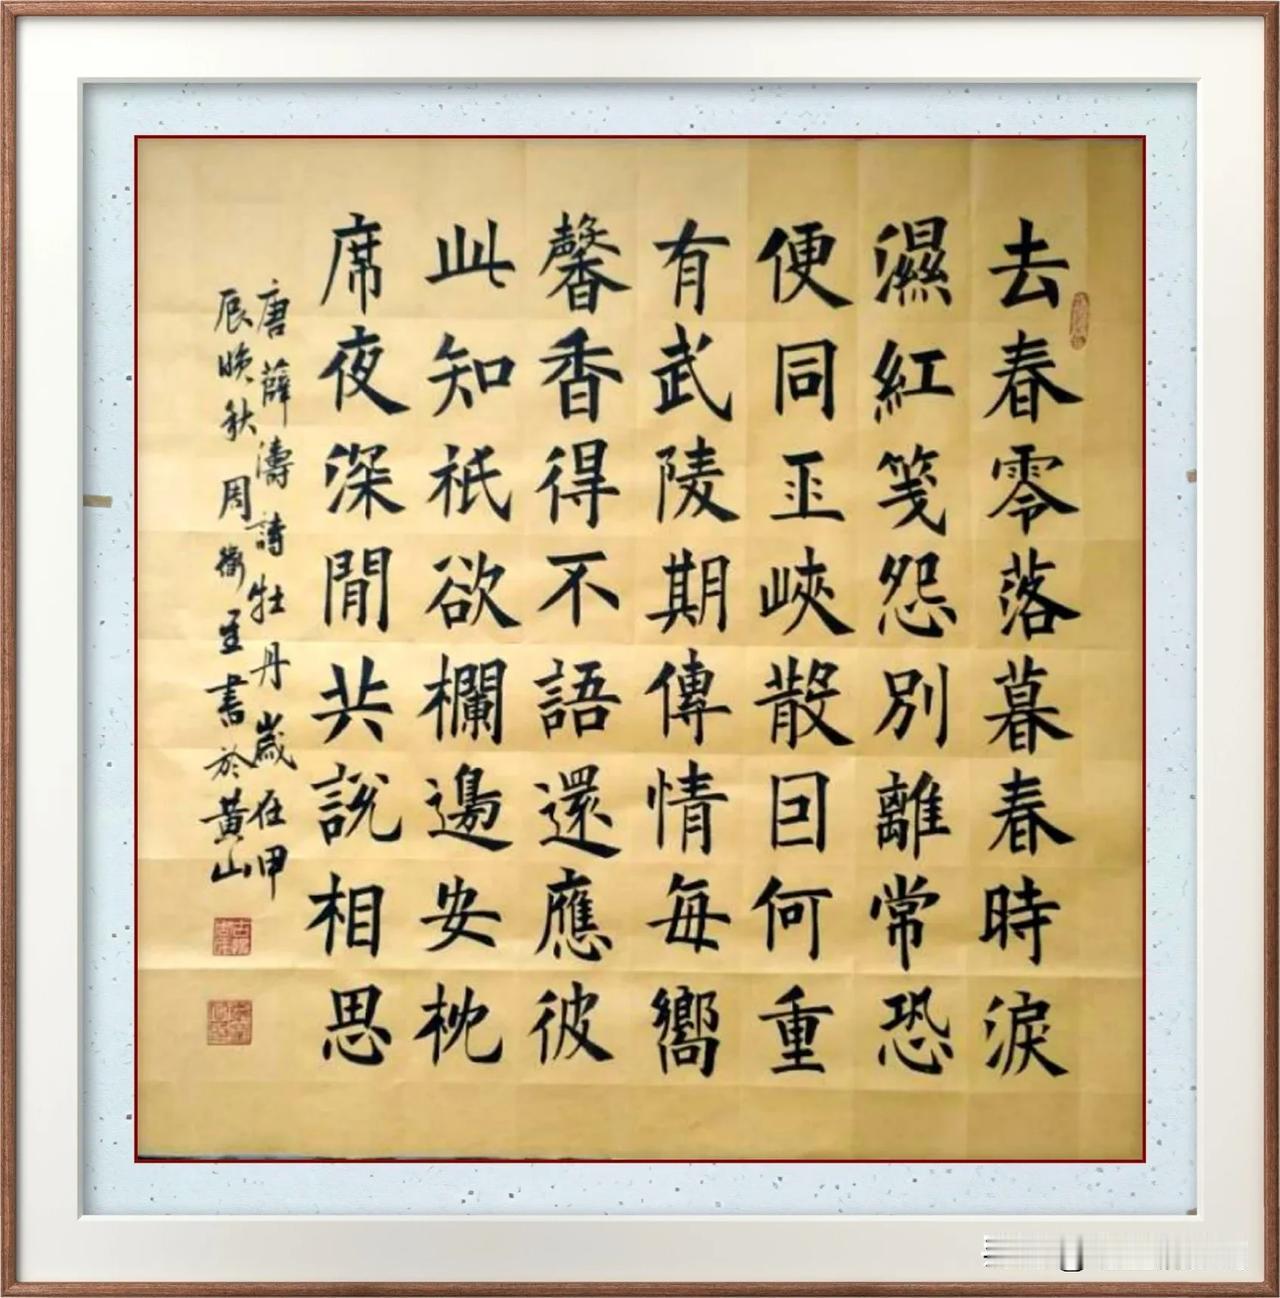 去春零落暮春時淚
濕紅箋怨別離常恐
便同巫峽散因何重
有武陵期傳情每嚮
馨香得不語還應彼
此知祇欲欄邊安枕
席夜深閒共說相思
唐薛濤詩牡丹歲在甲
辰晚秋周衛星書於黃山